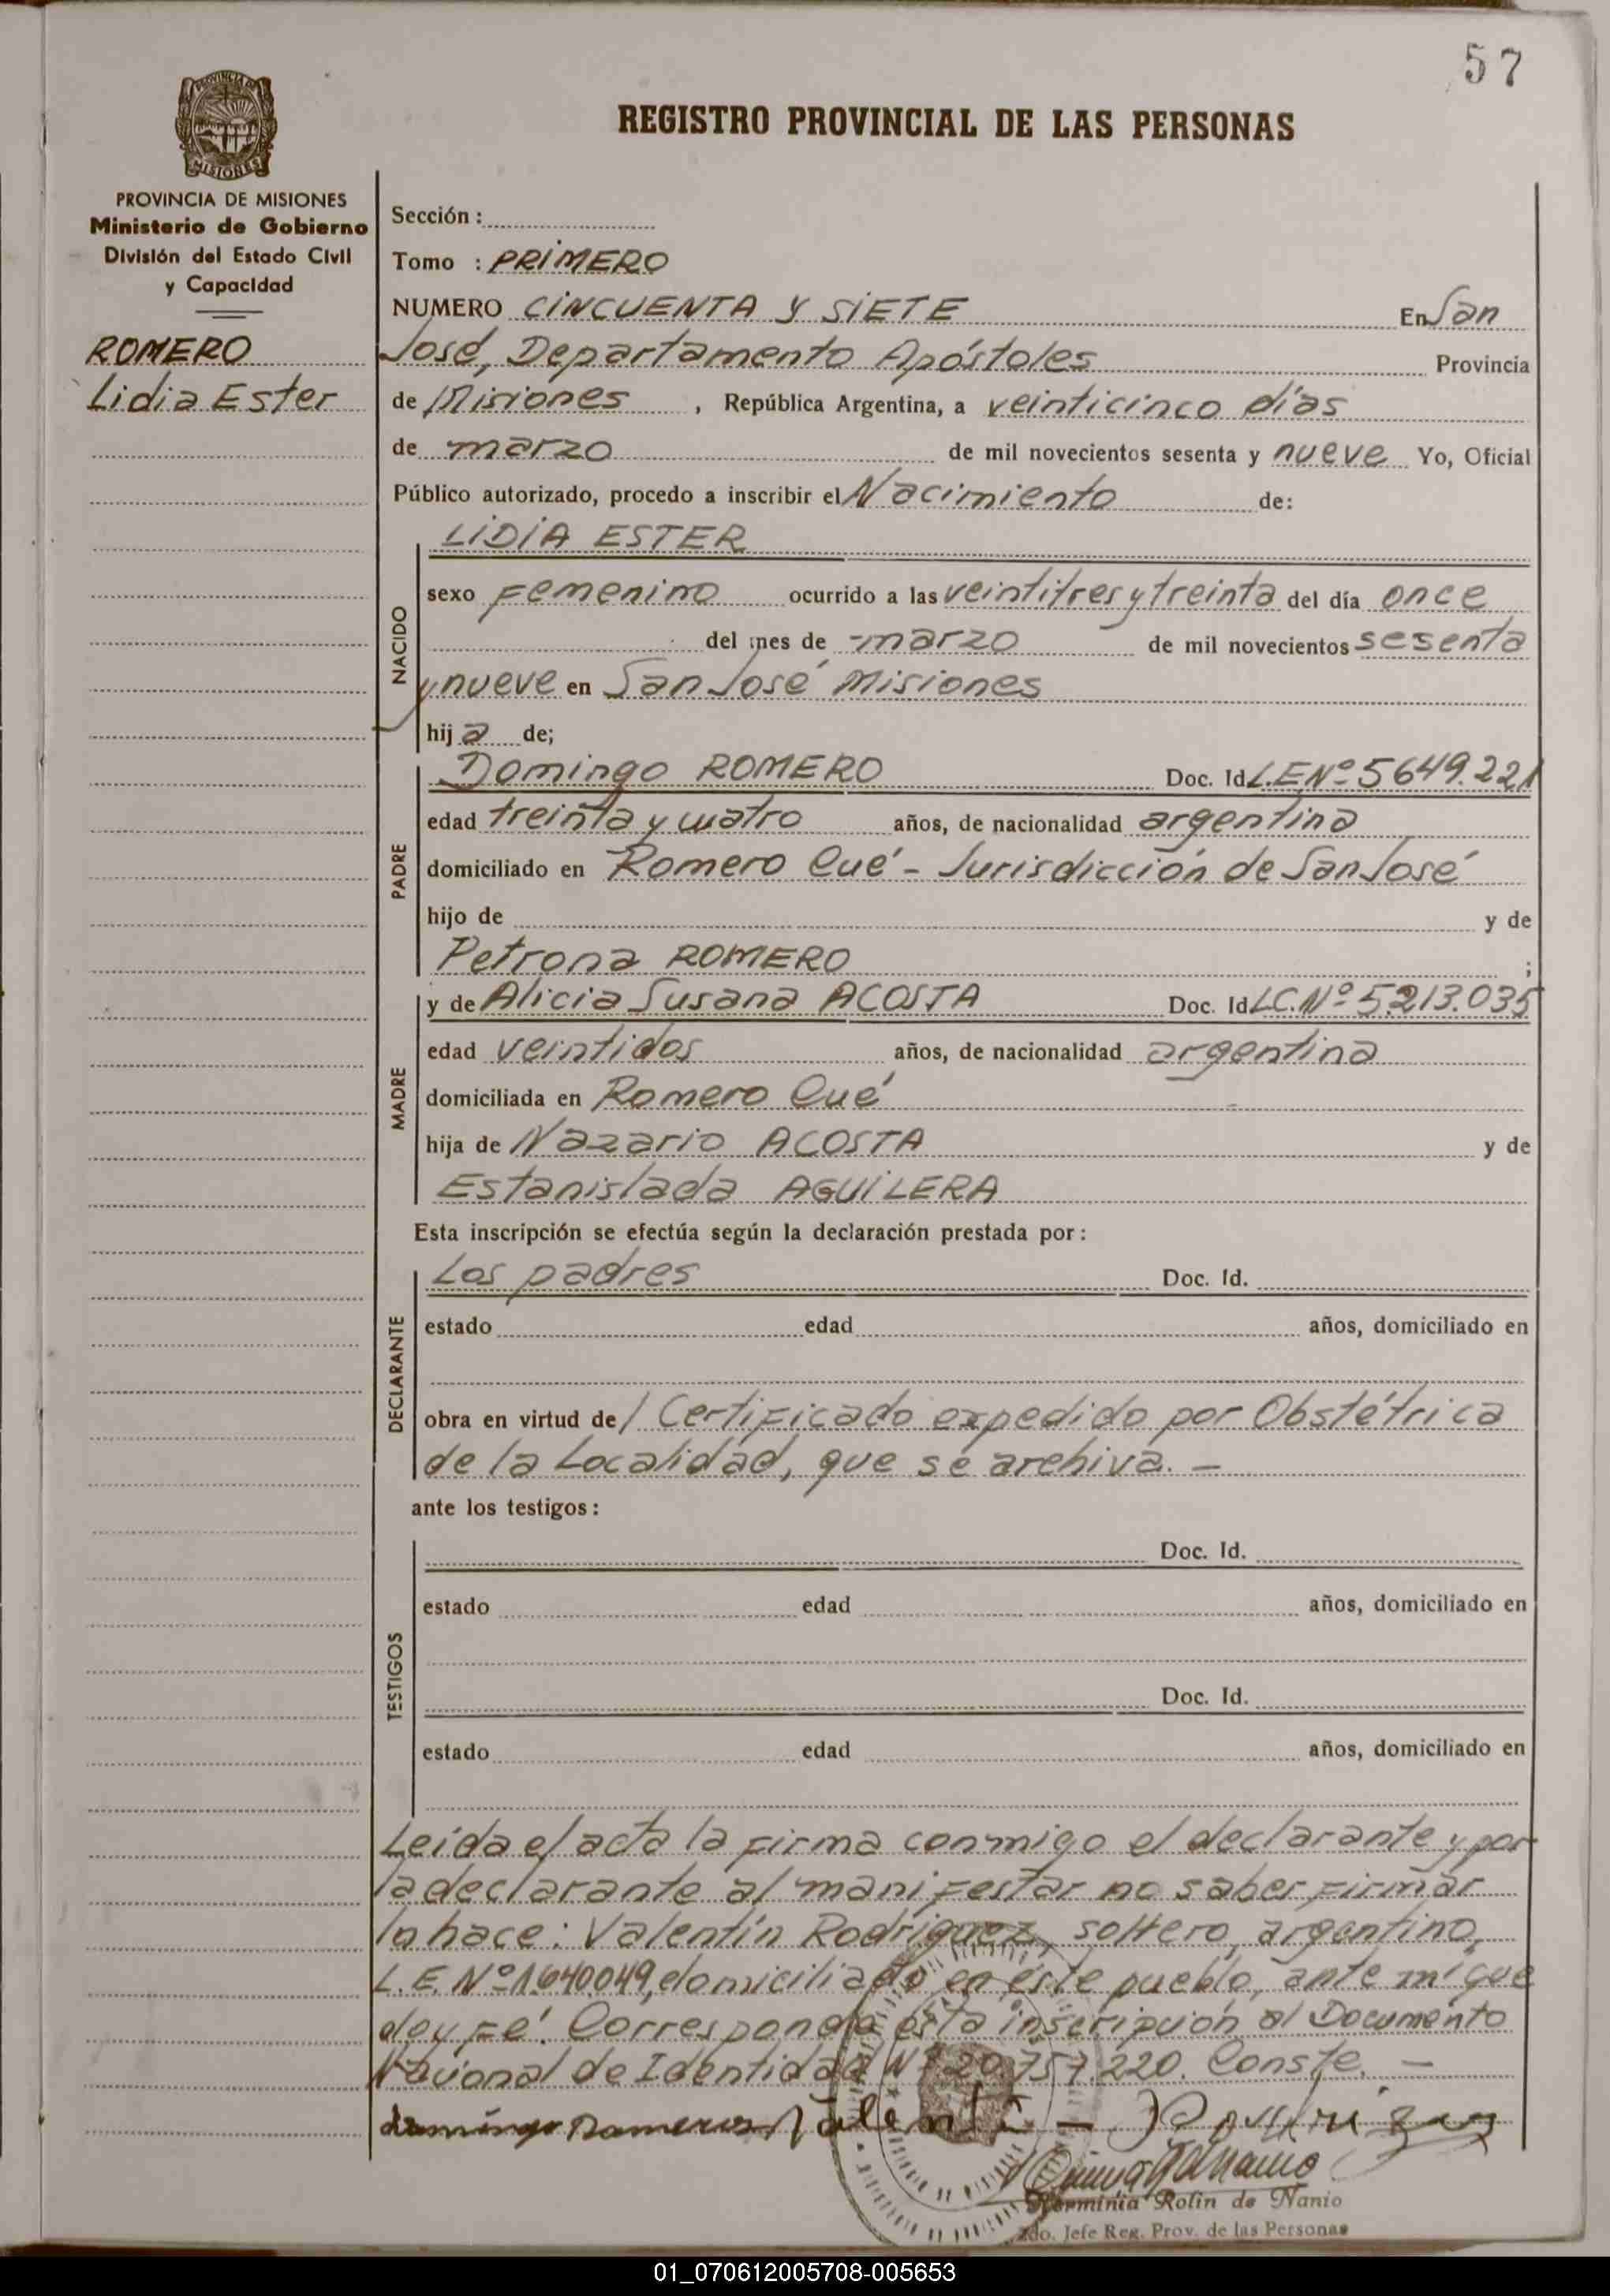 57
REGISTRO PROVINCIAL DE LAS PERSONAS
PROVINCIA DE MISIONES
Ministerio de Gobierno
División del Estado Civil
y Capacidad
ROMERO
Lidia Ester
Sección :
Tomo : PRIMERO
NUMERO CINCUENTA Y SIETE En San
José, Departamento Apóstoles Provincia
de Misiones , República Argentina, a veinticinco días
de marzo de mil novecientos sesenta y nueve Yo, Oficial
Público autorizado, procedo a inscribir el Nacimiento de:
NACIDO
LIDIA ESTER
sexo Femenino ocurrido a las veintitres y treinta del día once
del mes de marzo de mil novecientos sesenta
y nueve en San José Misiones
hija de;
PADRE
Domingo ROMERO Doc. Id L.E.Nº 5649.221
edad treinta y cuatro años, de nacionalidad argentina
domiciliado en Romero Cué - Jurisdicción de San José
hijo de y de
Petrona ROMERO ;
MADRE
y de Alicia Susana ACOSTA Doc. Id L.C.Nº 5.213.035
edad veintidos años, de nacionalidad argentina
domiciliada en Romero Cué
hija de Nazario ACOSTA y de
Estanislada AGUILERA
Esta inscripción se efectúa según la declaración prestada por :
DECLARANTE
Los padres Doc. Id.
estado edad años, domiciliado en
obra en virtud de / Certificado expedido por Obstétrica
de la Localidad, que se archiva. -
ante los testigos :
TESTIGOS
Doc. Id.
estado edad años, domiciliado en
Doc. Id.
estado edad años, domiciliado en
Leída el acta la firma conmigo el declarante y por
la declarante al manifestar no saber firmar
lo hace: Valentín Rodríguez, soltero, argentino,
L.E. Nº 1640049, domiciliado en éste pueblo, ante mí que
doy fé. Corresponde ésta inscripción al Documento
Nacional de Identidad Nº 20.757.220. Conste. -
domingo Romero Valentin
Herminia Rolin de Nanio
2do. Jefe Reg. Prov. de las Personas
01_070612005708-005653